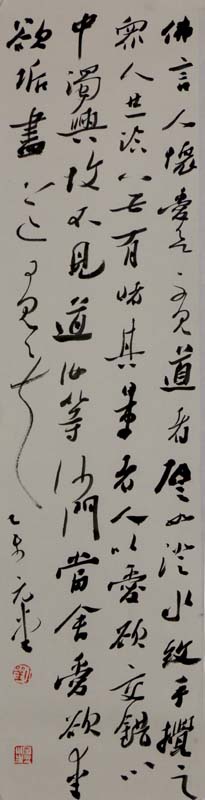 佛言人懷愛欲不見道者譬如澄水致手攪之
眾人共臨無有睹其影者人以愛欲交錯心
中濁興故不見道汝等沙門當舍愛欲愛
欲垢盡道可見矣
乙未
劉